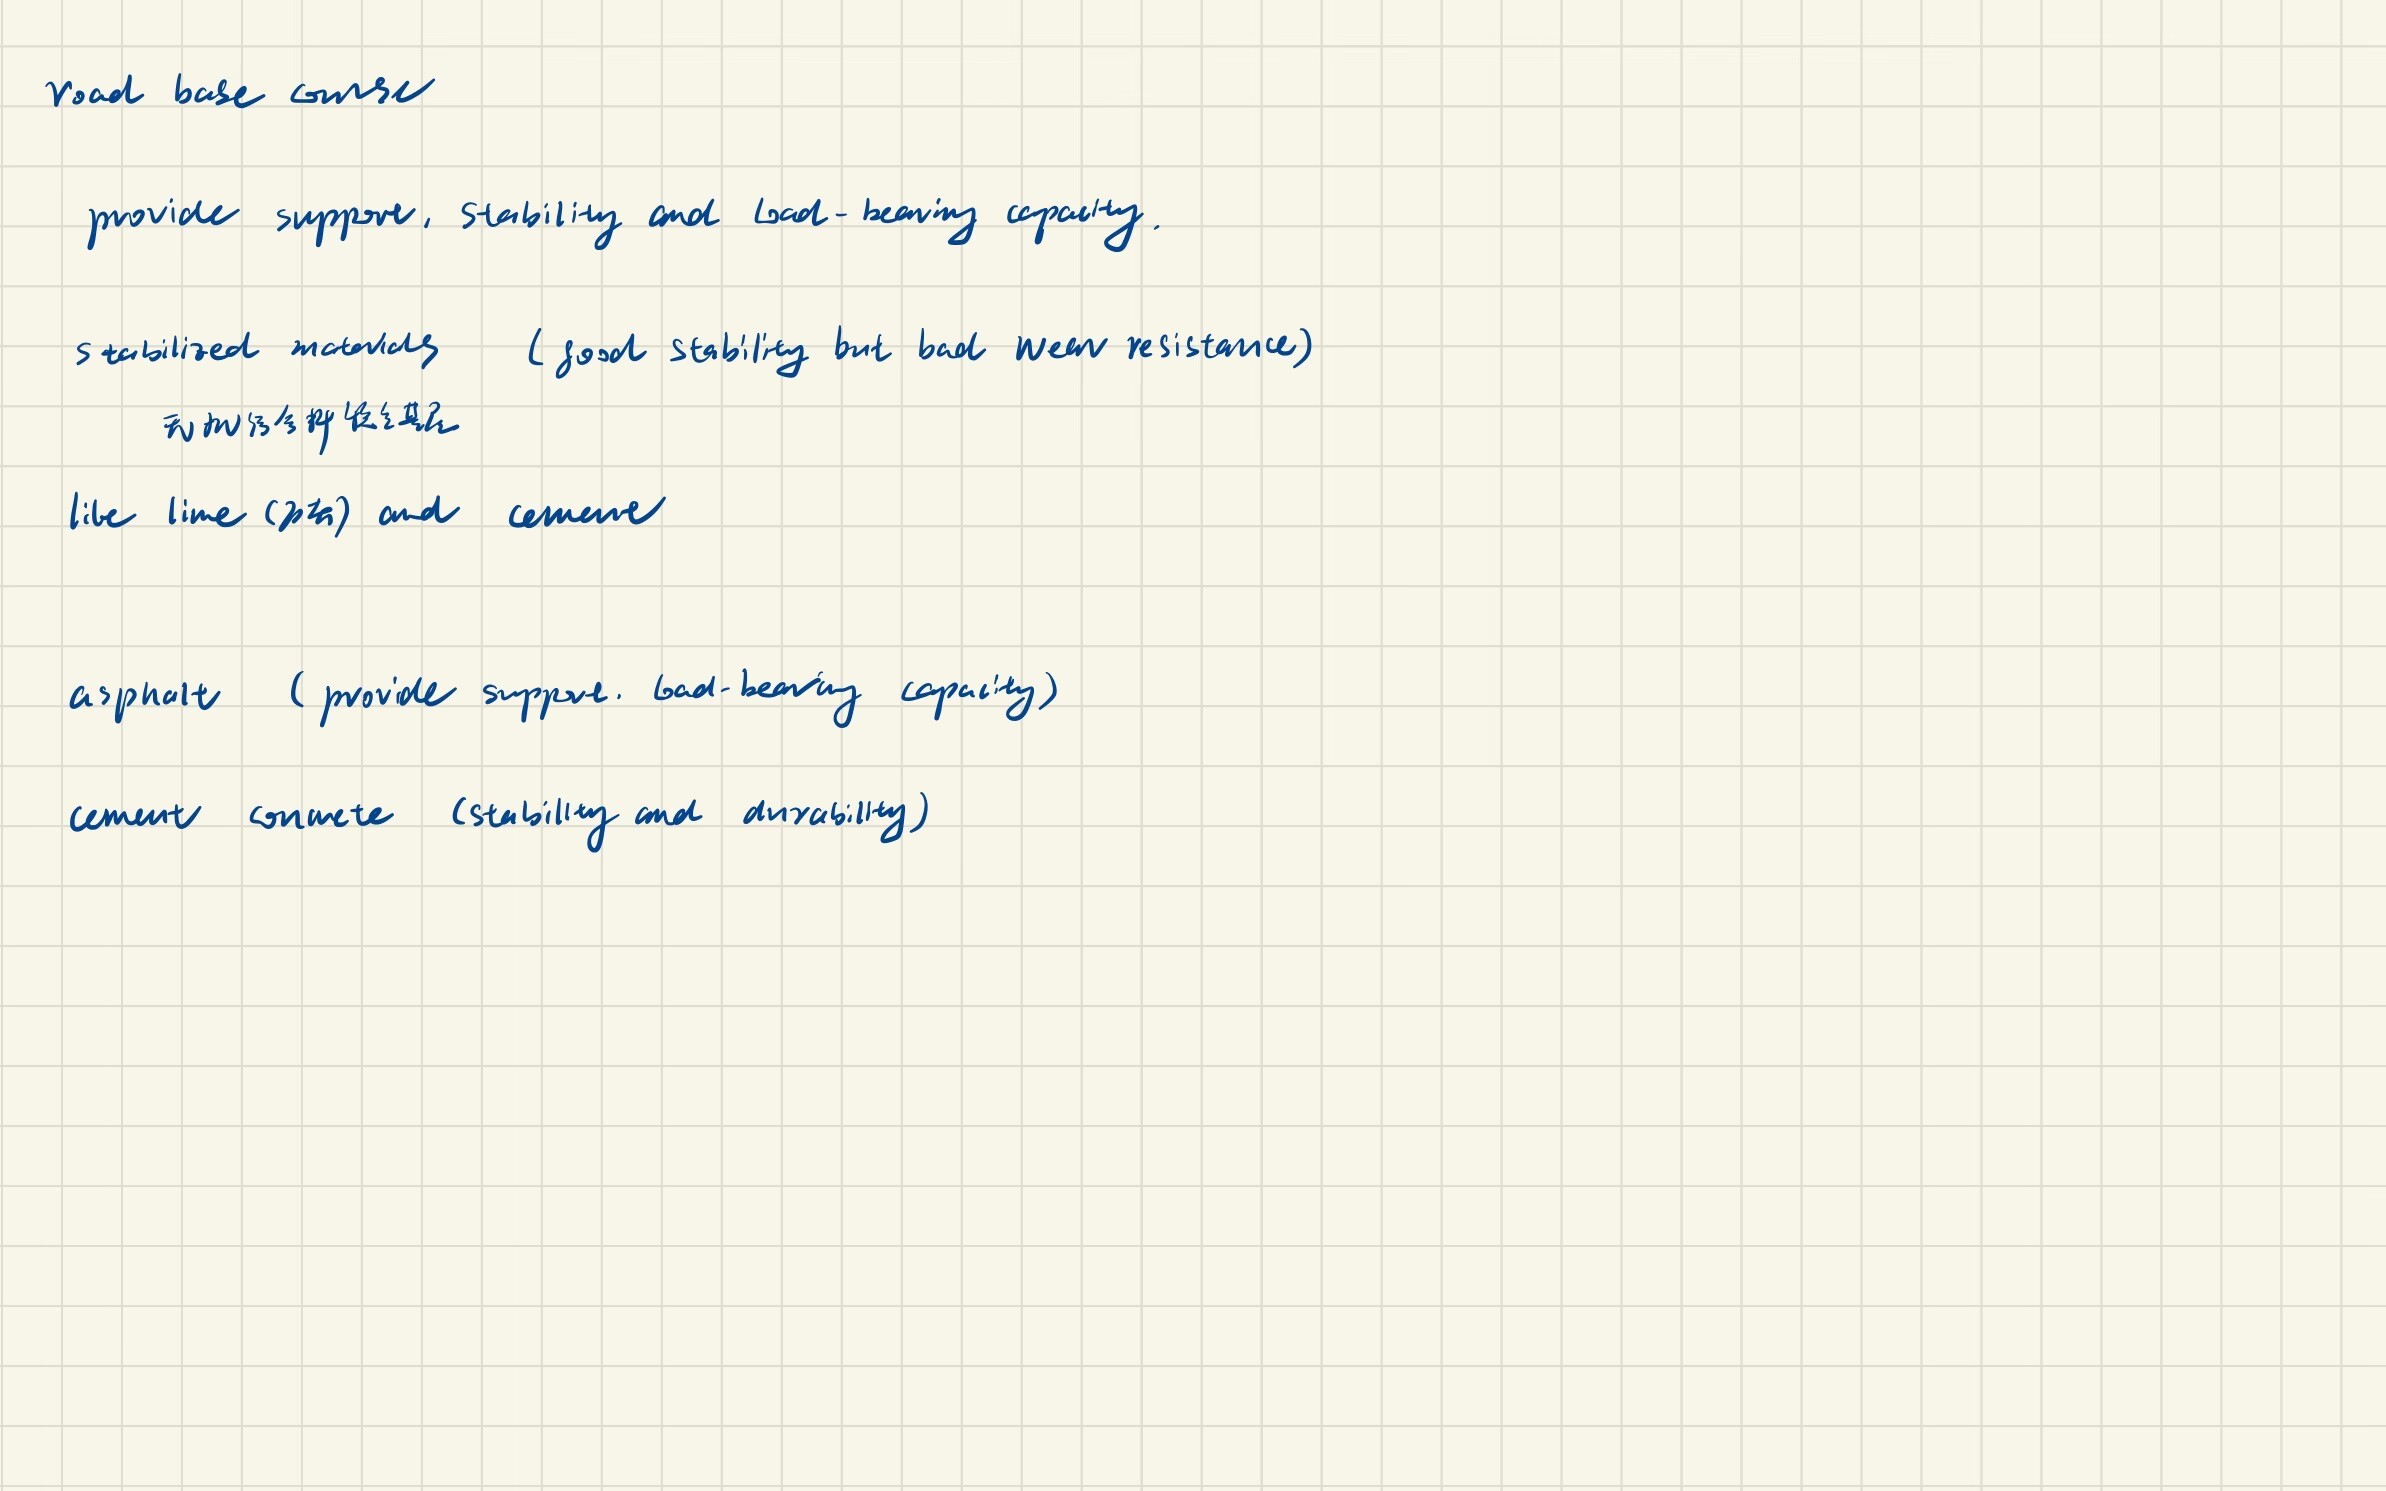 road base course
provide support, stability and load-bearing capacity.
stabilized materials (good stability but bad wear resistance)
无机结合料稳定基层
like lime (石灰) and cement
asphalt (provide support. load-bearing capacity)
cement concrete (stability and durability)